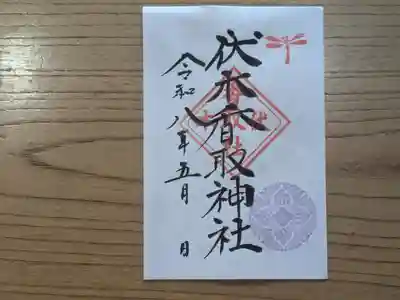 伏木香取神社
令和八年五月 日